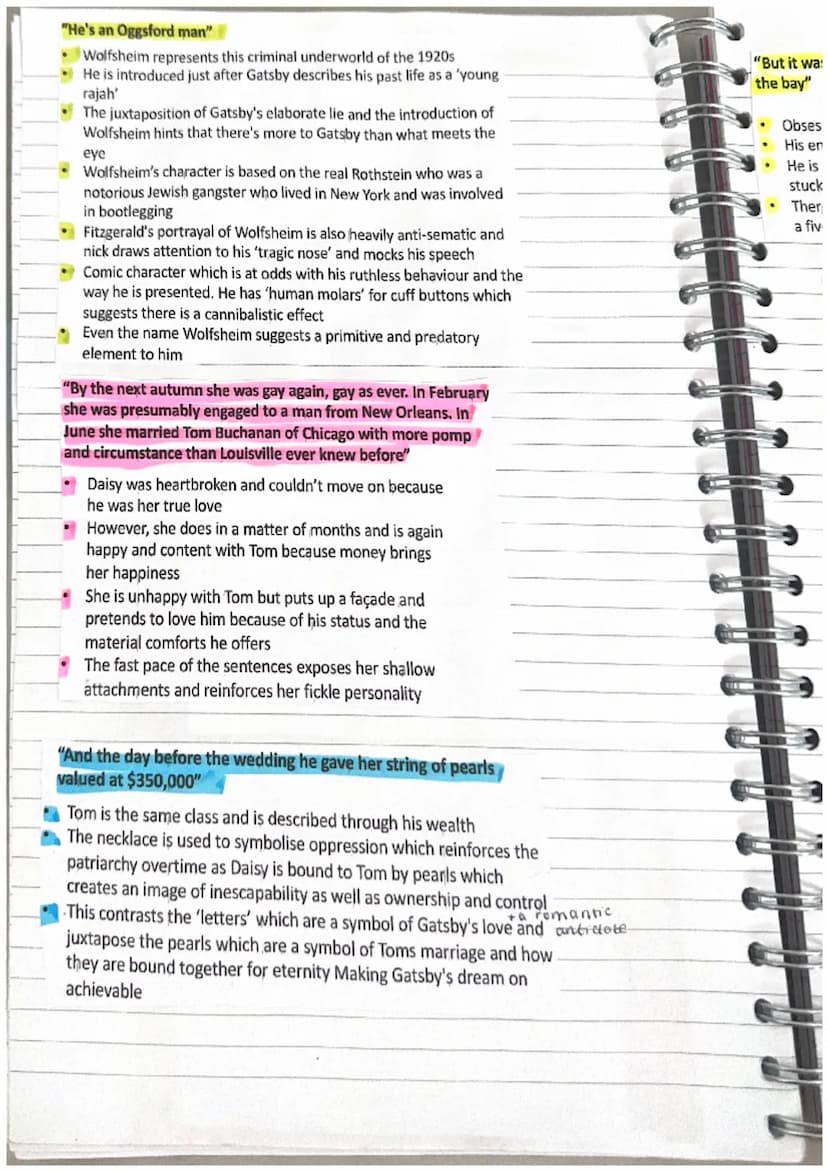 "He's an Oggsford man"
• Wolfsheim represents this criminal underworld of the 1920s
• He is introduced just after Gatsby describes his past life as a 'young
rajah'
• The juxtaposition of Gatsby's elaborate lie and the introduction of
Wolfsheim hints that there's more to Gatsby than what meets the
eye
• Wolfsheim's character is based on the real Rothstein who was a
notorious Jewish gangster who lived in New York and was involved
in bootlegging
• Fitzgerald's portrayal of Wolfsheim is also heavily anti-sematic and
nick draws attention to his 'tragic nose' and mocks his speech
• Comic character which is at odds with his ruthless behaviour and the
way he is presented. He has 'human molars' for cuff buttons which
suggests there is a cannibalistic effect
• Even the name Wolfsheim suggests a primitive and predatory
element to him
"By the next autumn she was gay again, gay as ever. In February
she was presumably engaged to a man from New Orleans. In
June she married Tom Buchanan of Chicago with more pomp
and circumstance than Louisville ever knew before"
• Daisy was heartbroken and couldn't move on because
he was her true love
• However, she does in a matter of months and is again
happy and content with Tom because money brings
her happiness
• She is unhappy with Tom but puts up a façade and
pretends to love him because of his status and the
material comforts he offers
• The fast pace of the sentences exposes her shallow
attachments and reinforces her fickle personality
"And the day before the wedding he gave her string of pearls
valued at $350,000"
• Tom is the same class and is described through his wealth
• The necklace is used to symbolise oppression which reinforces the
patriarchy overtime as Daisy is bound to Tom by pearls which
creates an image of inescapability as well as ownership and control
+ a romantic
• This contrasts the 'letters' which are a symbol of Gatsby's love and antidote
juxtapose the pearls which are a symbol of Toms marriage and how
they are bound together for eternity Making Gatsby's dream on
achievable
"But it wa
the bay"
• Obses
• His en
• He is
stuck
• Ther
a fiv